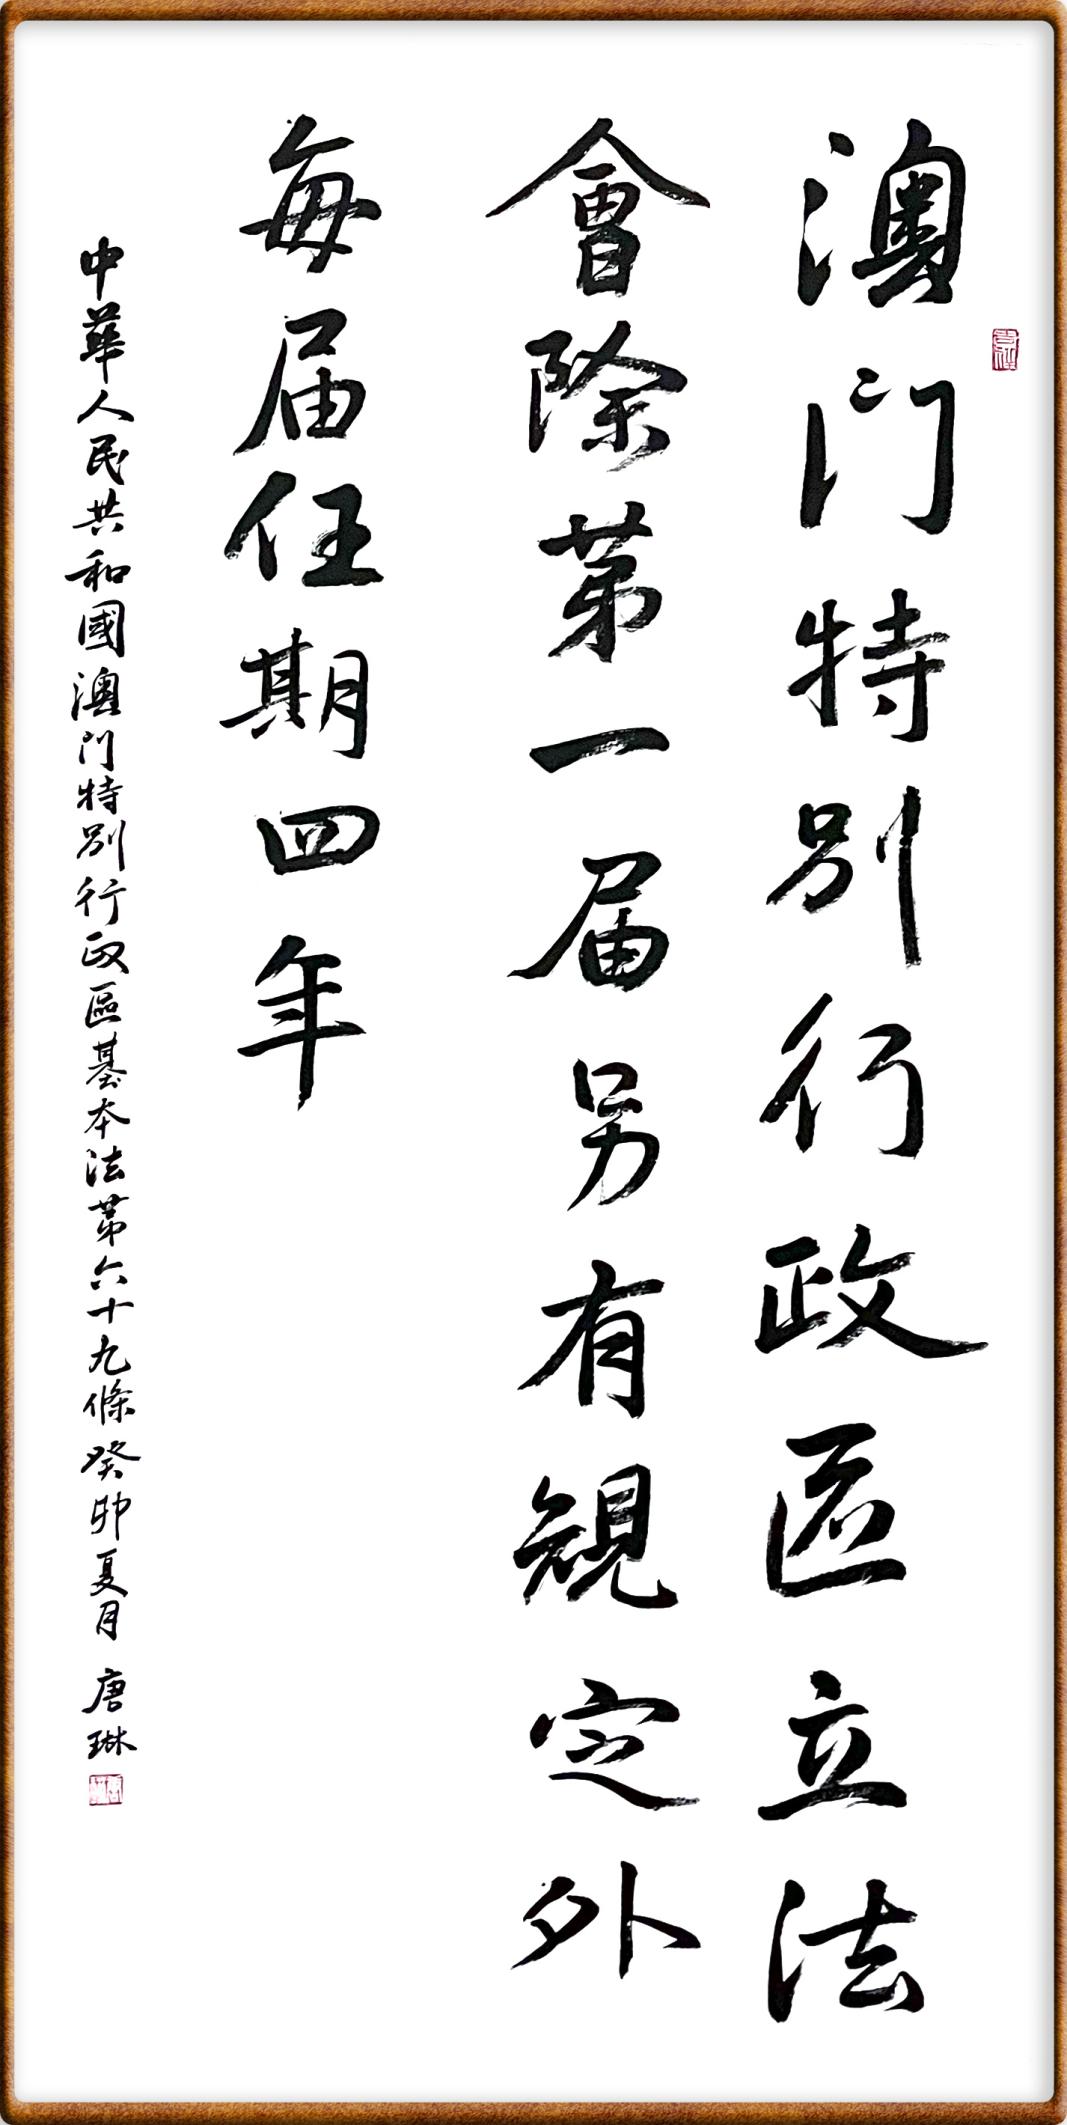 澳门特别行政区立法
會除第一届另有規定外
每届任期四年
中華人民共和國澳門特别行政區基本法第六十九條 癸卯夏月 唐琳